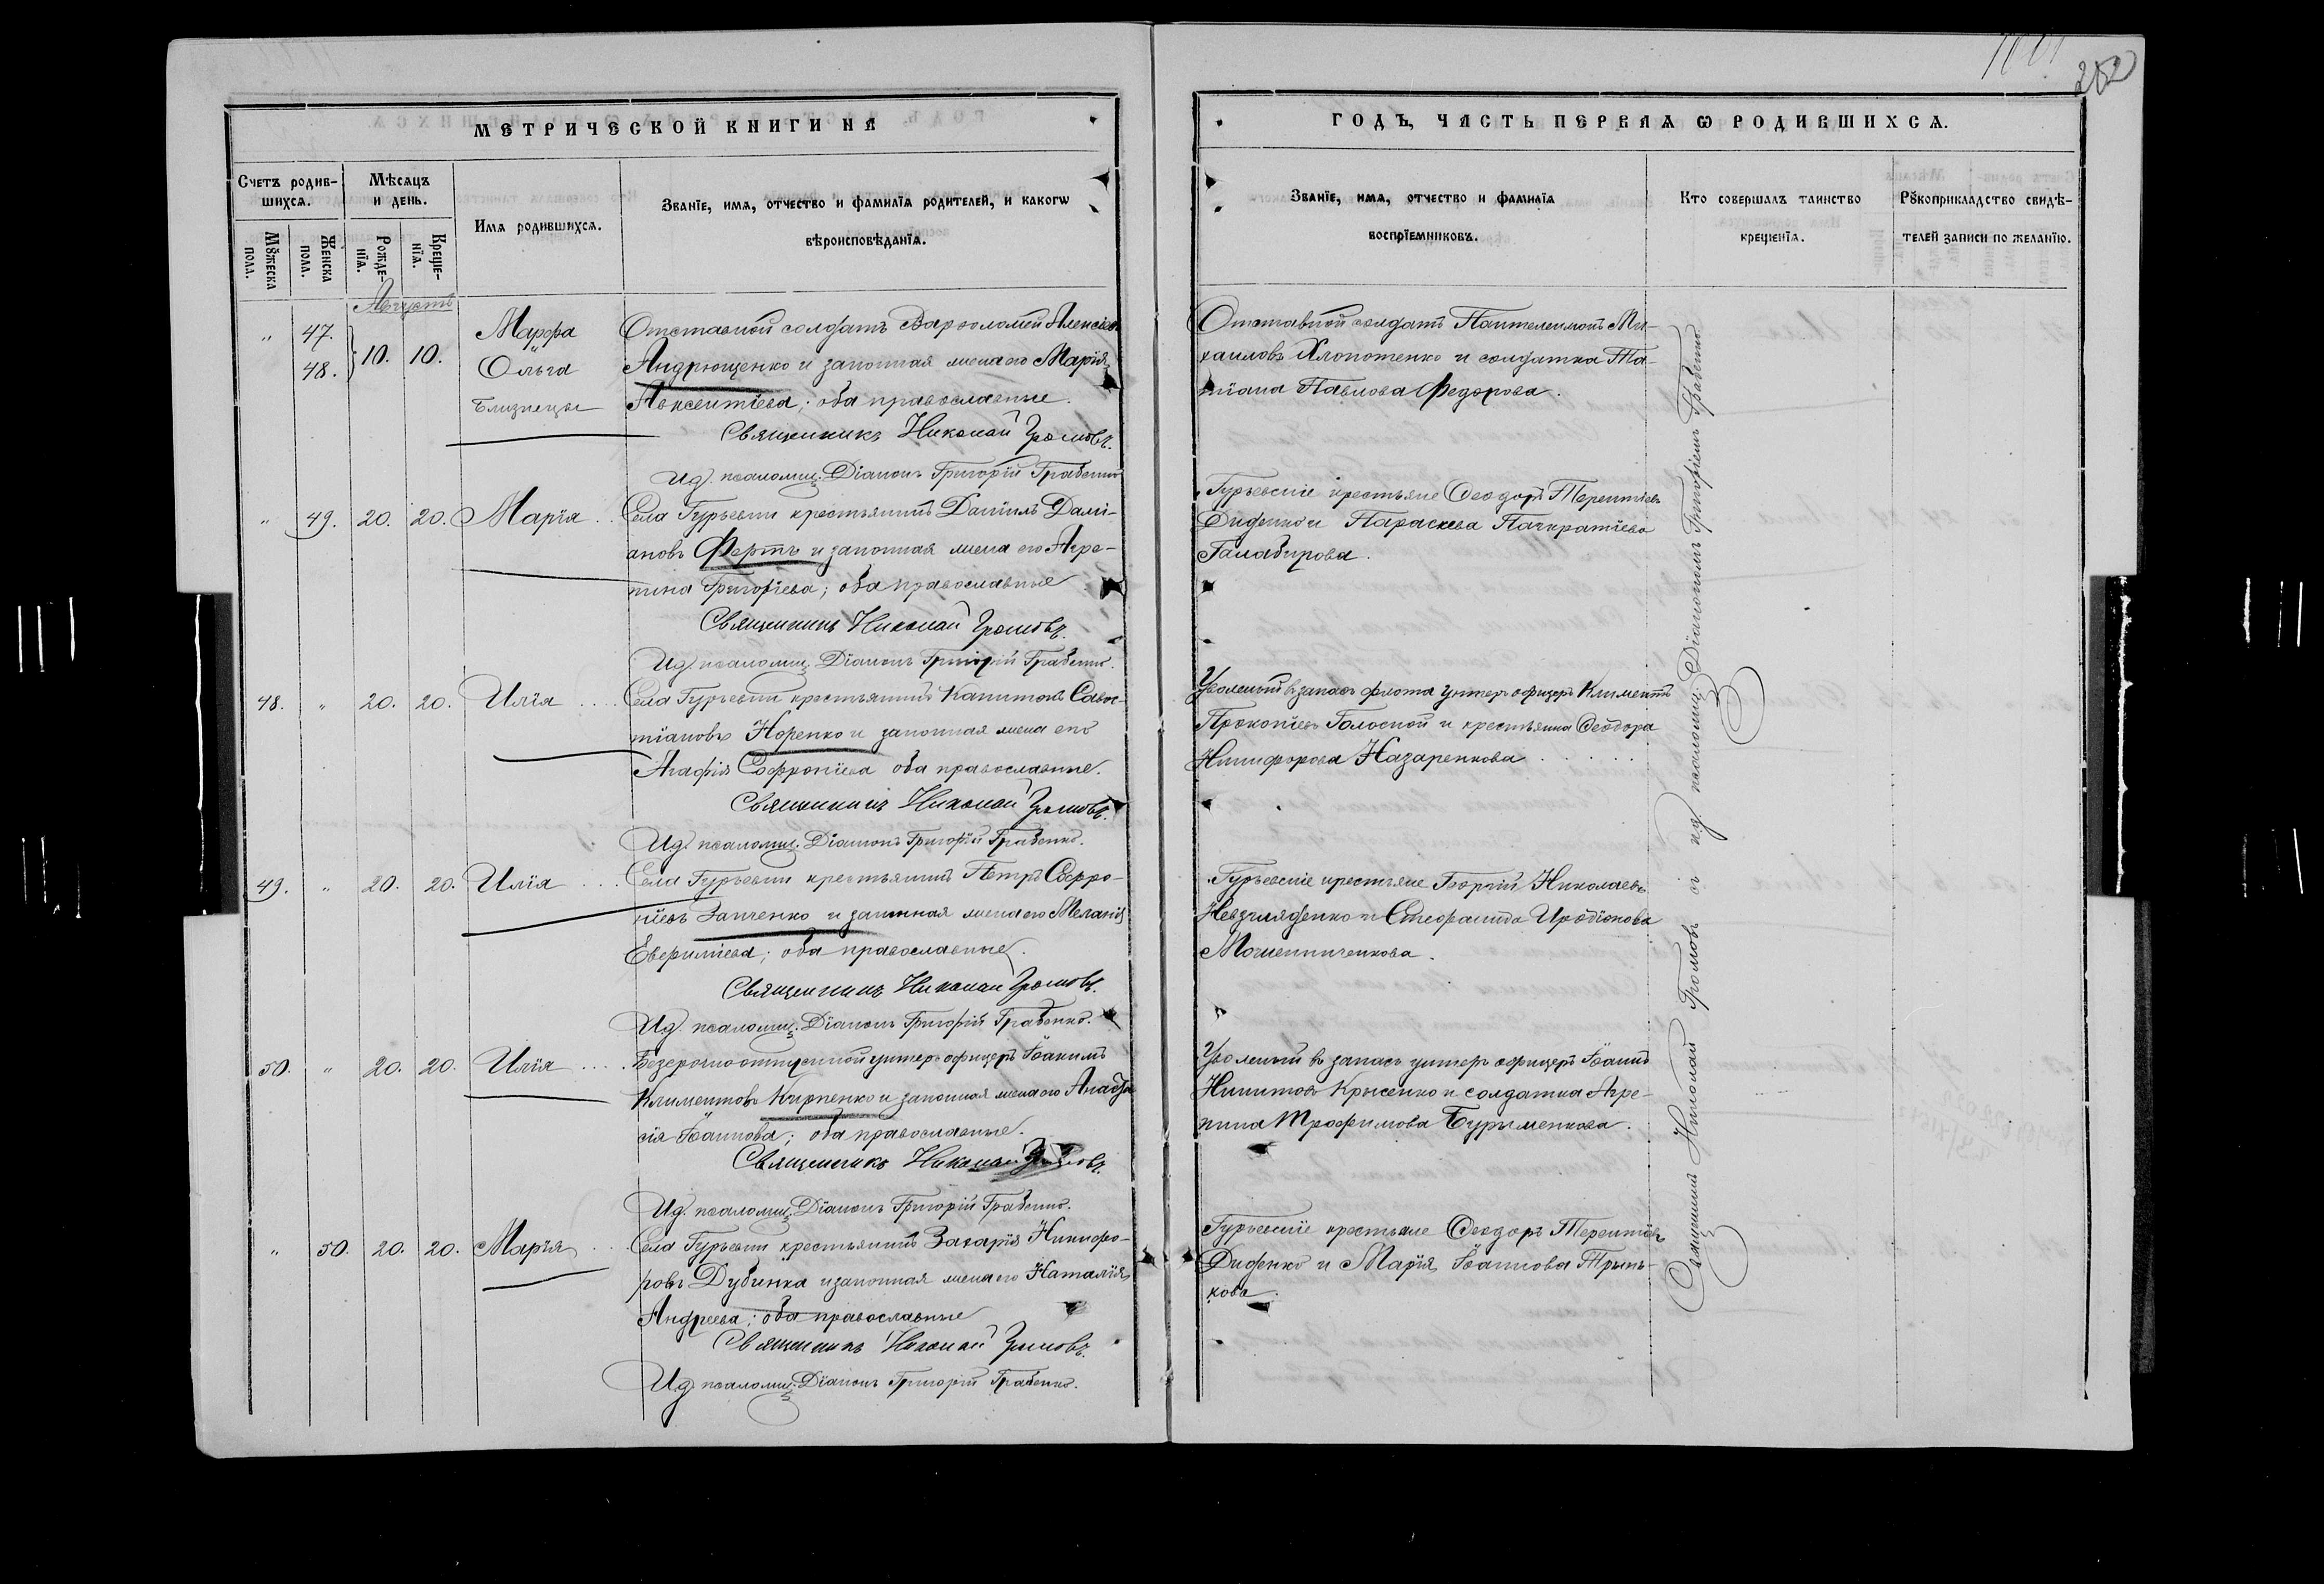 282
МЕТРИЧЕСКОЙ КНИГИ НА
ГОДЪ, ЧАСТЬ ПЕРВАЯ Ѡ РОДИВШИХСѦ.
Счетъ родив-
шихсѧ.
Мѣсѧцъ
и день.
Имѧ родившихсѧ.
Званїе, имѧ, отчество и фамилїѧ родителей, и какогѡ
вѣроисповѣданїѧ.
Мꙋжеска
пола.
Женска
пола.
Рожде-
нїѧ.
Креще-
нїѧ.
Званїе, имѧ, отчество и фамилїѧ
воспрїемниковъ.
Кто совершалъ таинство
крещенїѧ.
Рꙋкоприкладство свидѣ-
телей записи по желанїю.
Августъ
" 47. 10. 10. Марфа
48. Ольга
Близнецы
Отставной солдатъ Варфоломей Алексѣевъ
Андрющенко и законная жена его Марія
Авксентіева; оба православные.
Священникъ Николай Громовъ.
Ид. псаломщ. Діаконъ Григорій Грабенко
Отставной солдатъ Пантелеимонъ Ми-
хаиловъ Хлопотенко и солдатка Та-
тіана Павлова Федорова.
" 49. 20. 20. Марія
Села Гурьевки крестьянинъ Даніилъ Домі-
ановъ Фертъ и законная жена его Агре-
пина Григоріева; оба православные
Священникъ Николай Громовъ.
Ид. псаломщ. Діаконъ Григорій Грабенко.
Гурьевскіе крестьяне Ѳеодоръ Терентіевъ
Диденко и Параскева Панкратіева
Галабурова.
48. " 20. 20. Илія
Села Гурьевки крестьянинъ Капитонъ Савос-
тіановъ Норенко и законная жена его
Агафія Софроніева оба православные.
Священникъ Николай Громовъ.
Ид. псаломщ. Діаконъ Григорій Грабенко.
Уволенный въ запасъ флота унтеръ офицеръ Климентъ
Прокопіевъ Голосной и крестьянка Ѳеодора
Никифорова Назаренкова
49. " 20. 20. Илія
Села Гурьевки крестьянинъ Петръ Софро-
ніевъ Заиченко и законная жена его Меланія
Евфиміева; оба православные.
Священникъ Николай Громовъ.
Ид. псаломщ. Діаконъ Григорій Грабенко.
Гурьевскіе крестьяне Георгій Николаевъ
Невзгляденко и Стефанида Иродіонова
Мошенниченкова.
50. " 20. 20. Илія
Безсрочноотпускной унтеръ офицеръ Іоакимъ
Климентовъ Кирпенко и законная жена его Анаста-
сія Іоаннова; оба православные.
Священникъ Николай Громовъ.
Ид. псаломщ. Діаконъ Григорій Грабенко.
Уволенный въ запасъ унтеръ офицеръ Іоаннъ
Никитовъ Крысенко и солдатка Агре-
пина Трофимова Бурименкова.
" 50. 20. 20. Марія
Села Гурьевки крестьянинъ Захарія Никифо-
ровъ Дубинка и законная жена его Наталія
Андреева; оба православные
Священникъ Николай Громовъ.
Ид. псаломщ. Діаконъ Григорій Грабенко.
Гурьевскіе крестьяне Ѳеодоръ Терентіевъ
Диденко и Марія Іоаннова Трынь-
кова.
Священникъ Николай Громовъ съ ид. псаломщ. Діакономъ Григоріемъ Грабенко